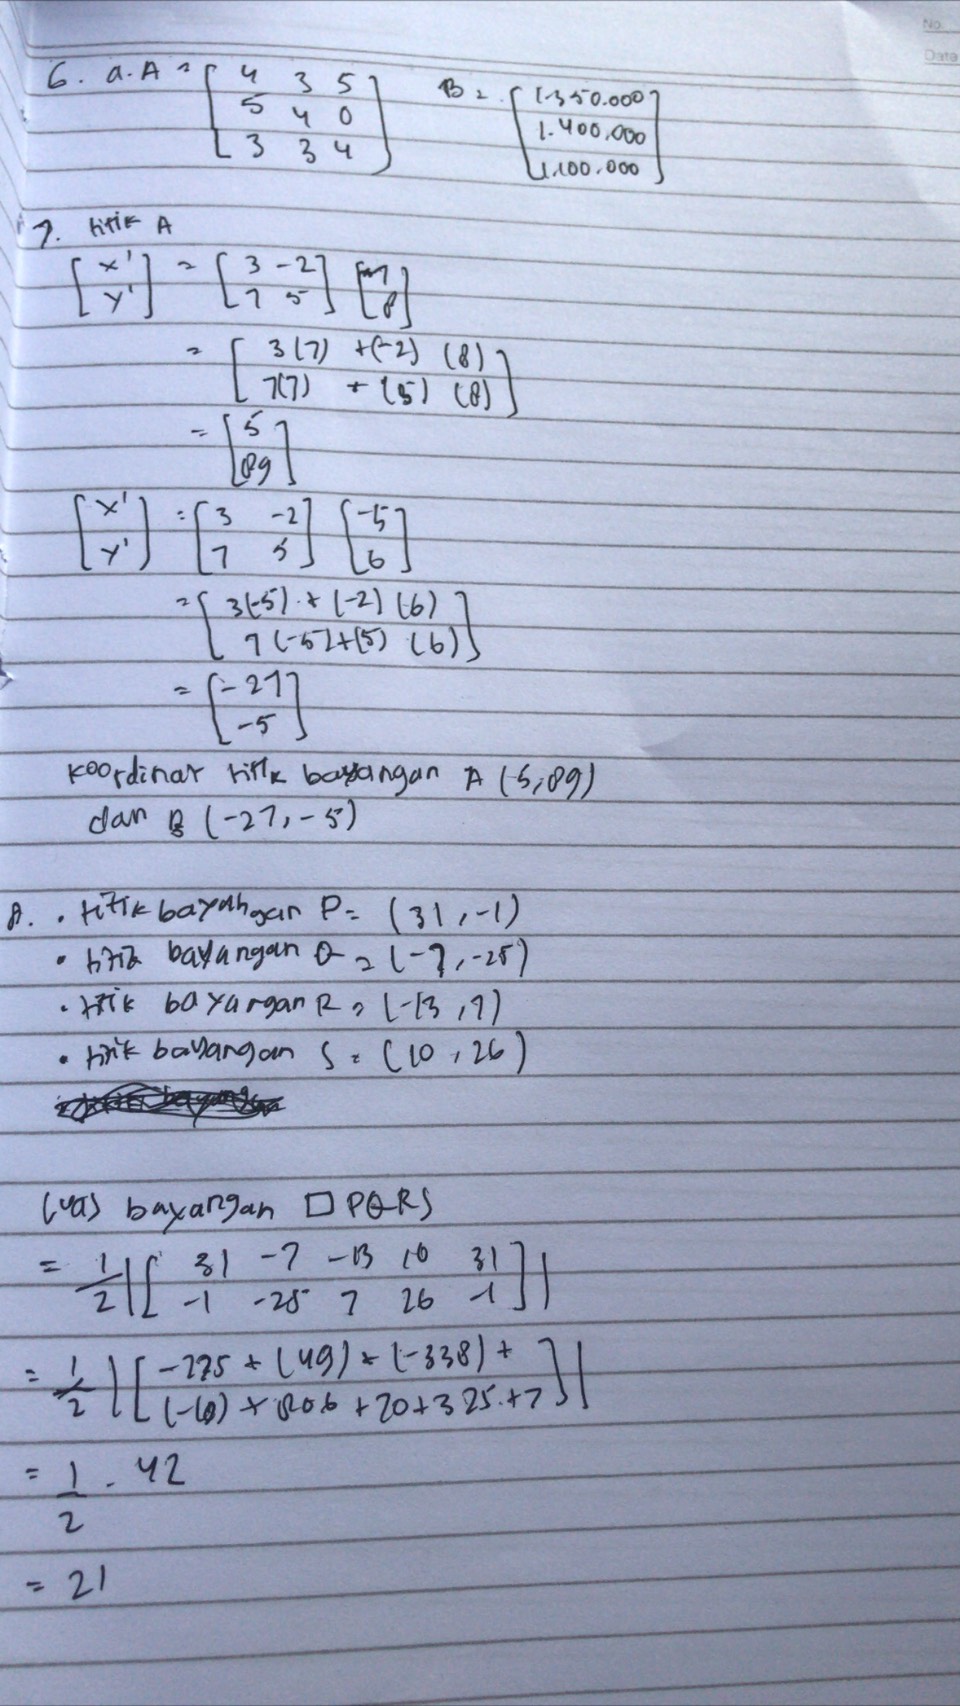 No.
Date
6. a. A = [ 4 3 5 ] B = [ 1.350.000 ]
[ 5 4 0 ] [ 1.400.000 ]
[ 3 3 4 ] [ 1.100.000 ]
7. titik A
[ x' ] = [ 3 -2 ] [ 7 ]
[ y' ] [ 7 5 ] [ 8 ]
= [ 3(7) + (-2) (8) ]
[ 7(7) + (5) (8) ]
= [ 5 ]
[ 89 ]
[ x' ] = [ 3 -2 ] [ -5 ]
[ y' ] [ 7 5 ] [ 6 ]
= [ 3(-5) + (-2) (6) ]
[ 7 (-5) + (5) (6) ]
= [ -27 ]
[ -5 ]
koordinat titik bayangan A (5,89)
dan B (-27, -5)
8. • titik bayangan P = (31, -1)
• titik bayangan Q = (-7, -25)
• titik bayangan R = (-13, 7)
• titik bayangan S = (10, 26)
luas bayangan □ PQRS
= 1/2 | [ 31 -7 -13 10 31 ] |
[ -1 -25 7 26 -1 ]
= 1/2 | [ -775 + (49) + (-338) + ] |
[ (-10) + 806 + 70 + 325 + 7 ]
= 1/2 . 42
= 21